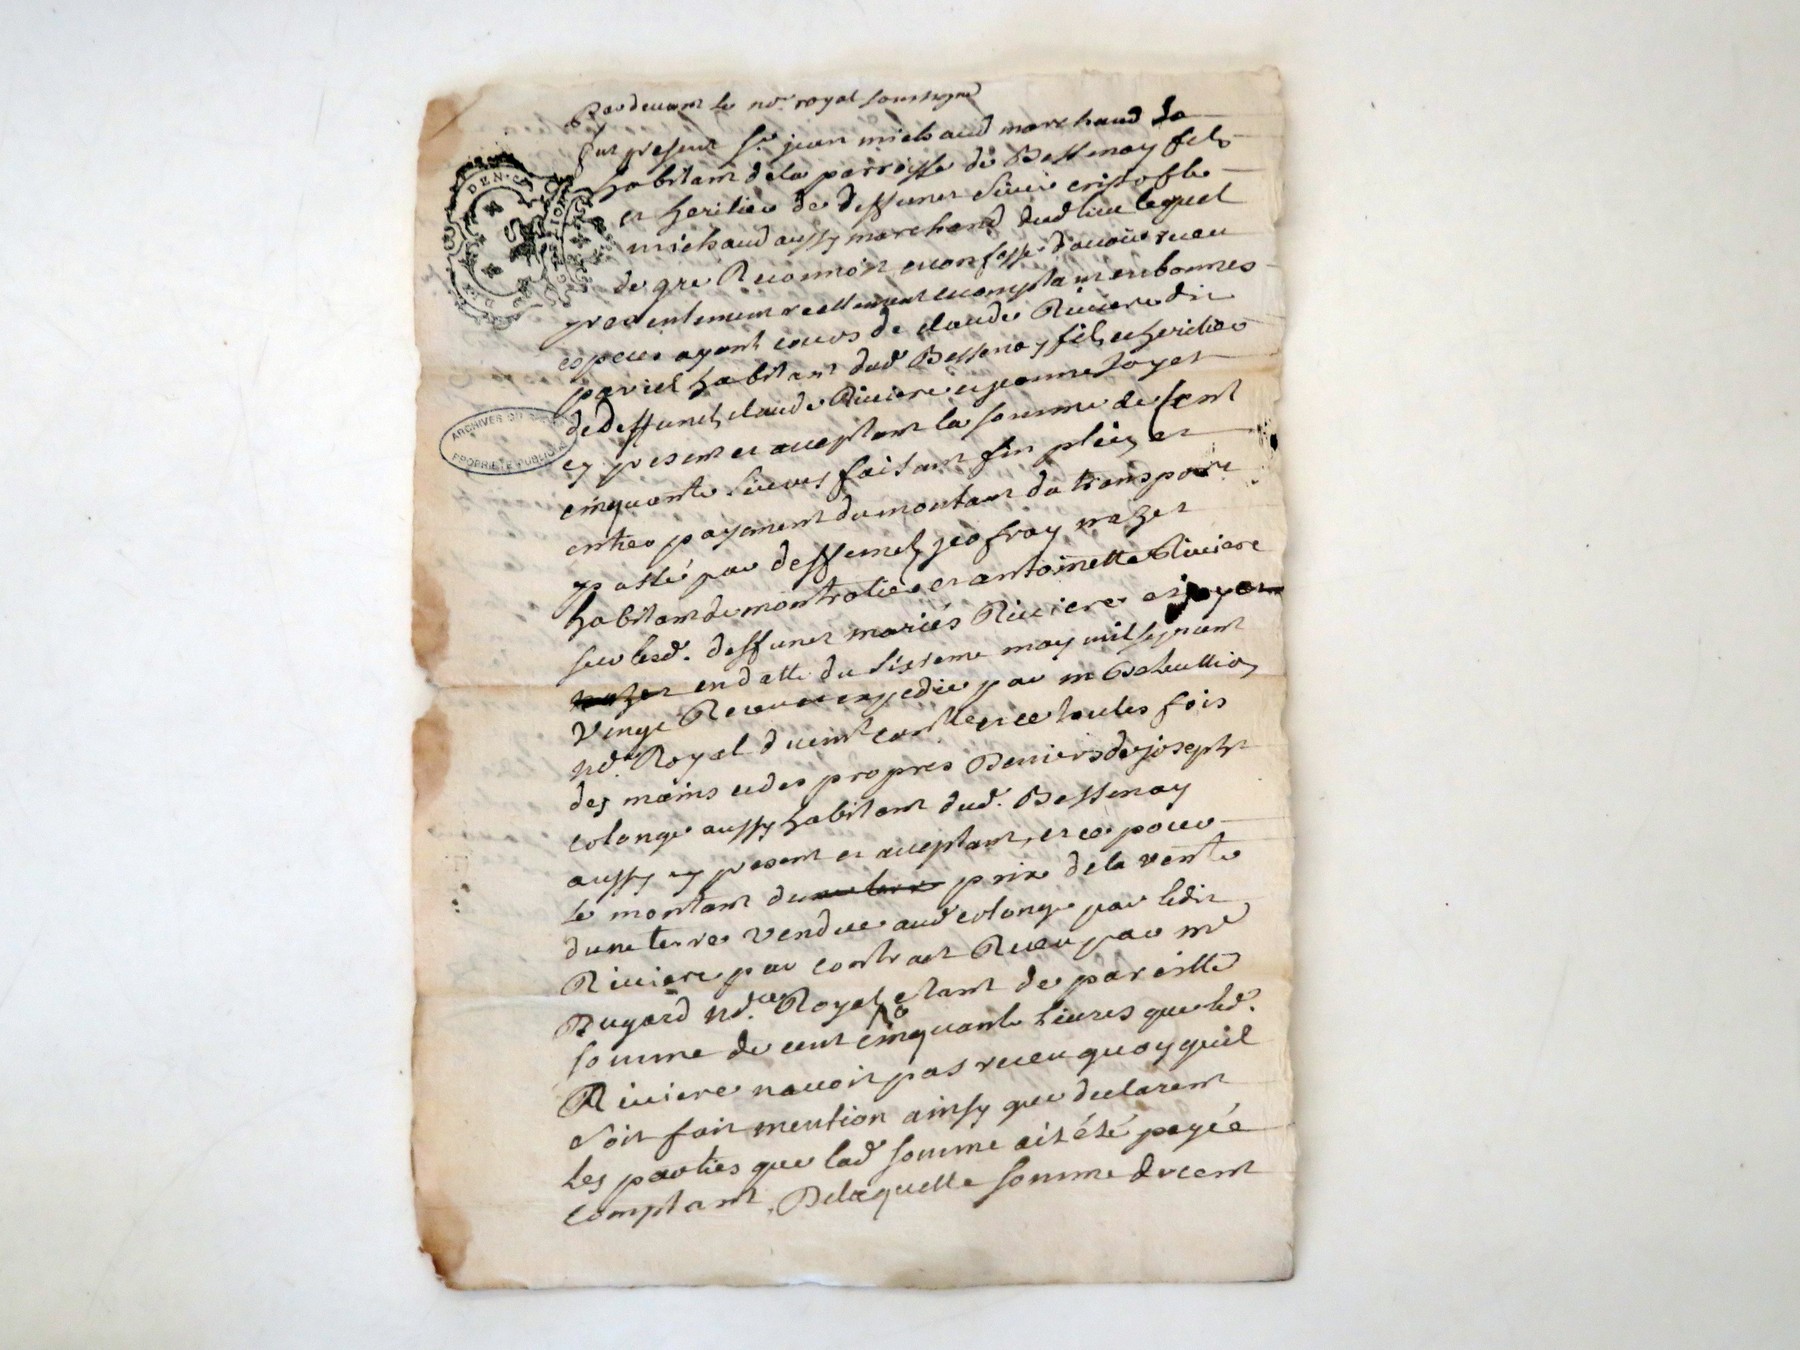 Pardevant le nore royal soussigné
fut present Sr jean michaud marchand
habitant de la parroisse de Bessenay fils
et heritier de deffunct sieur cristofle
michaud aussy marchand dud lieu lequel
de gré Reconnoit et confesse d'avoir receu
presentement reellement et comptant en bonnes
especes ayant cours de claude Riviere dit
pariel habitant dud Bessenay fils et heritier
de Deffuncts claude Riviere et jeanne
cy present et acceptant la somme de cent
cinquante livres faisant fin plus et
entier payement du montant du transport
passé par deffunct jeofray
habitant de montrotier et antoinette Riviere
sur lesd. deffunct mariés Riviere et
en datte du sixieme may mil sept cent
vingt Receu et expedié par me
no. Royal duement et ce toutes fois
des mains et des propres deniers de joseph
colonge aussy habitant dud. Bessenay
aussy cy present et acceptant, et ce pour
le montant du prix de la vente
d'une terre vendue aud colonge par ledit
Riviere par contract Receu par me
Bugard nore Royal etant de pareille
somme de cent cinquante livres que led.
Riviere n'avoit pas receu quoy qu'il
soit fait mention ainsy que declarent
les parties que lad somme ait été payée
comptant. De laquelle somme de cent
DEN
ARCHIVES DU
PROPRIÉTÉ PUBLIQUE